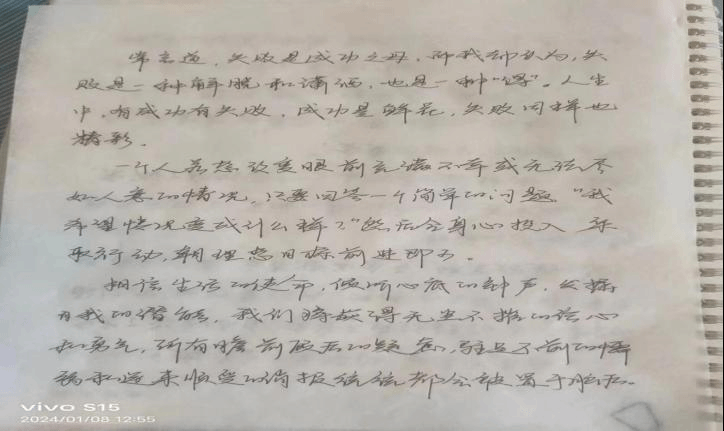 常言道，失败是成功之母，而我却认为，失
败是一种解脱和潇洒，也是一种“得”。人生
中，有成功有失败，成功是鲜花，失败同样也
精彩。
一个人若想改变眼前充满不幸或无法尽
如人意的情况，只要回答一个简单的问题：“我
希望情况变成什么样？”然后全身心投入，采
取行动，朝理想目标前进即可。
相信生活的使命，倾听心底的钟声，发掘
自我的潜能，我们将获得无坚不摧的信心
和勇气，所有瞻前顾后的疑惑，驻足不前的懦
弱和逆来顺受的消极统统都会被置于脑后。
vivo S15
2024/01/08 12:55